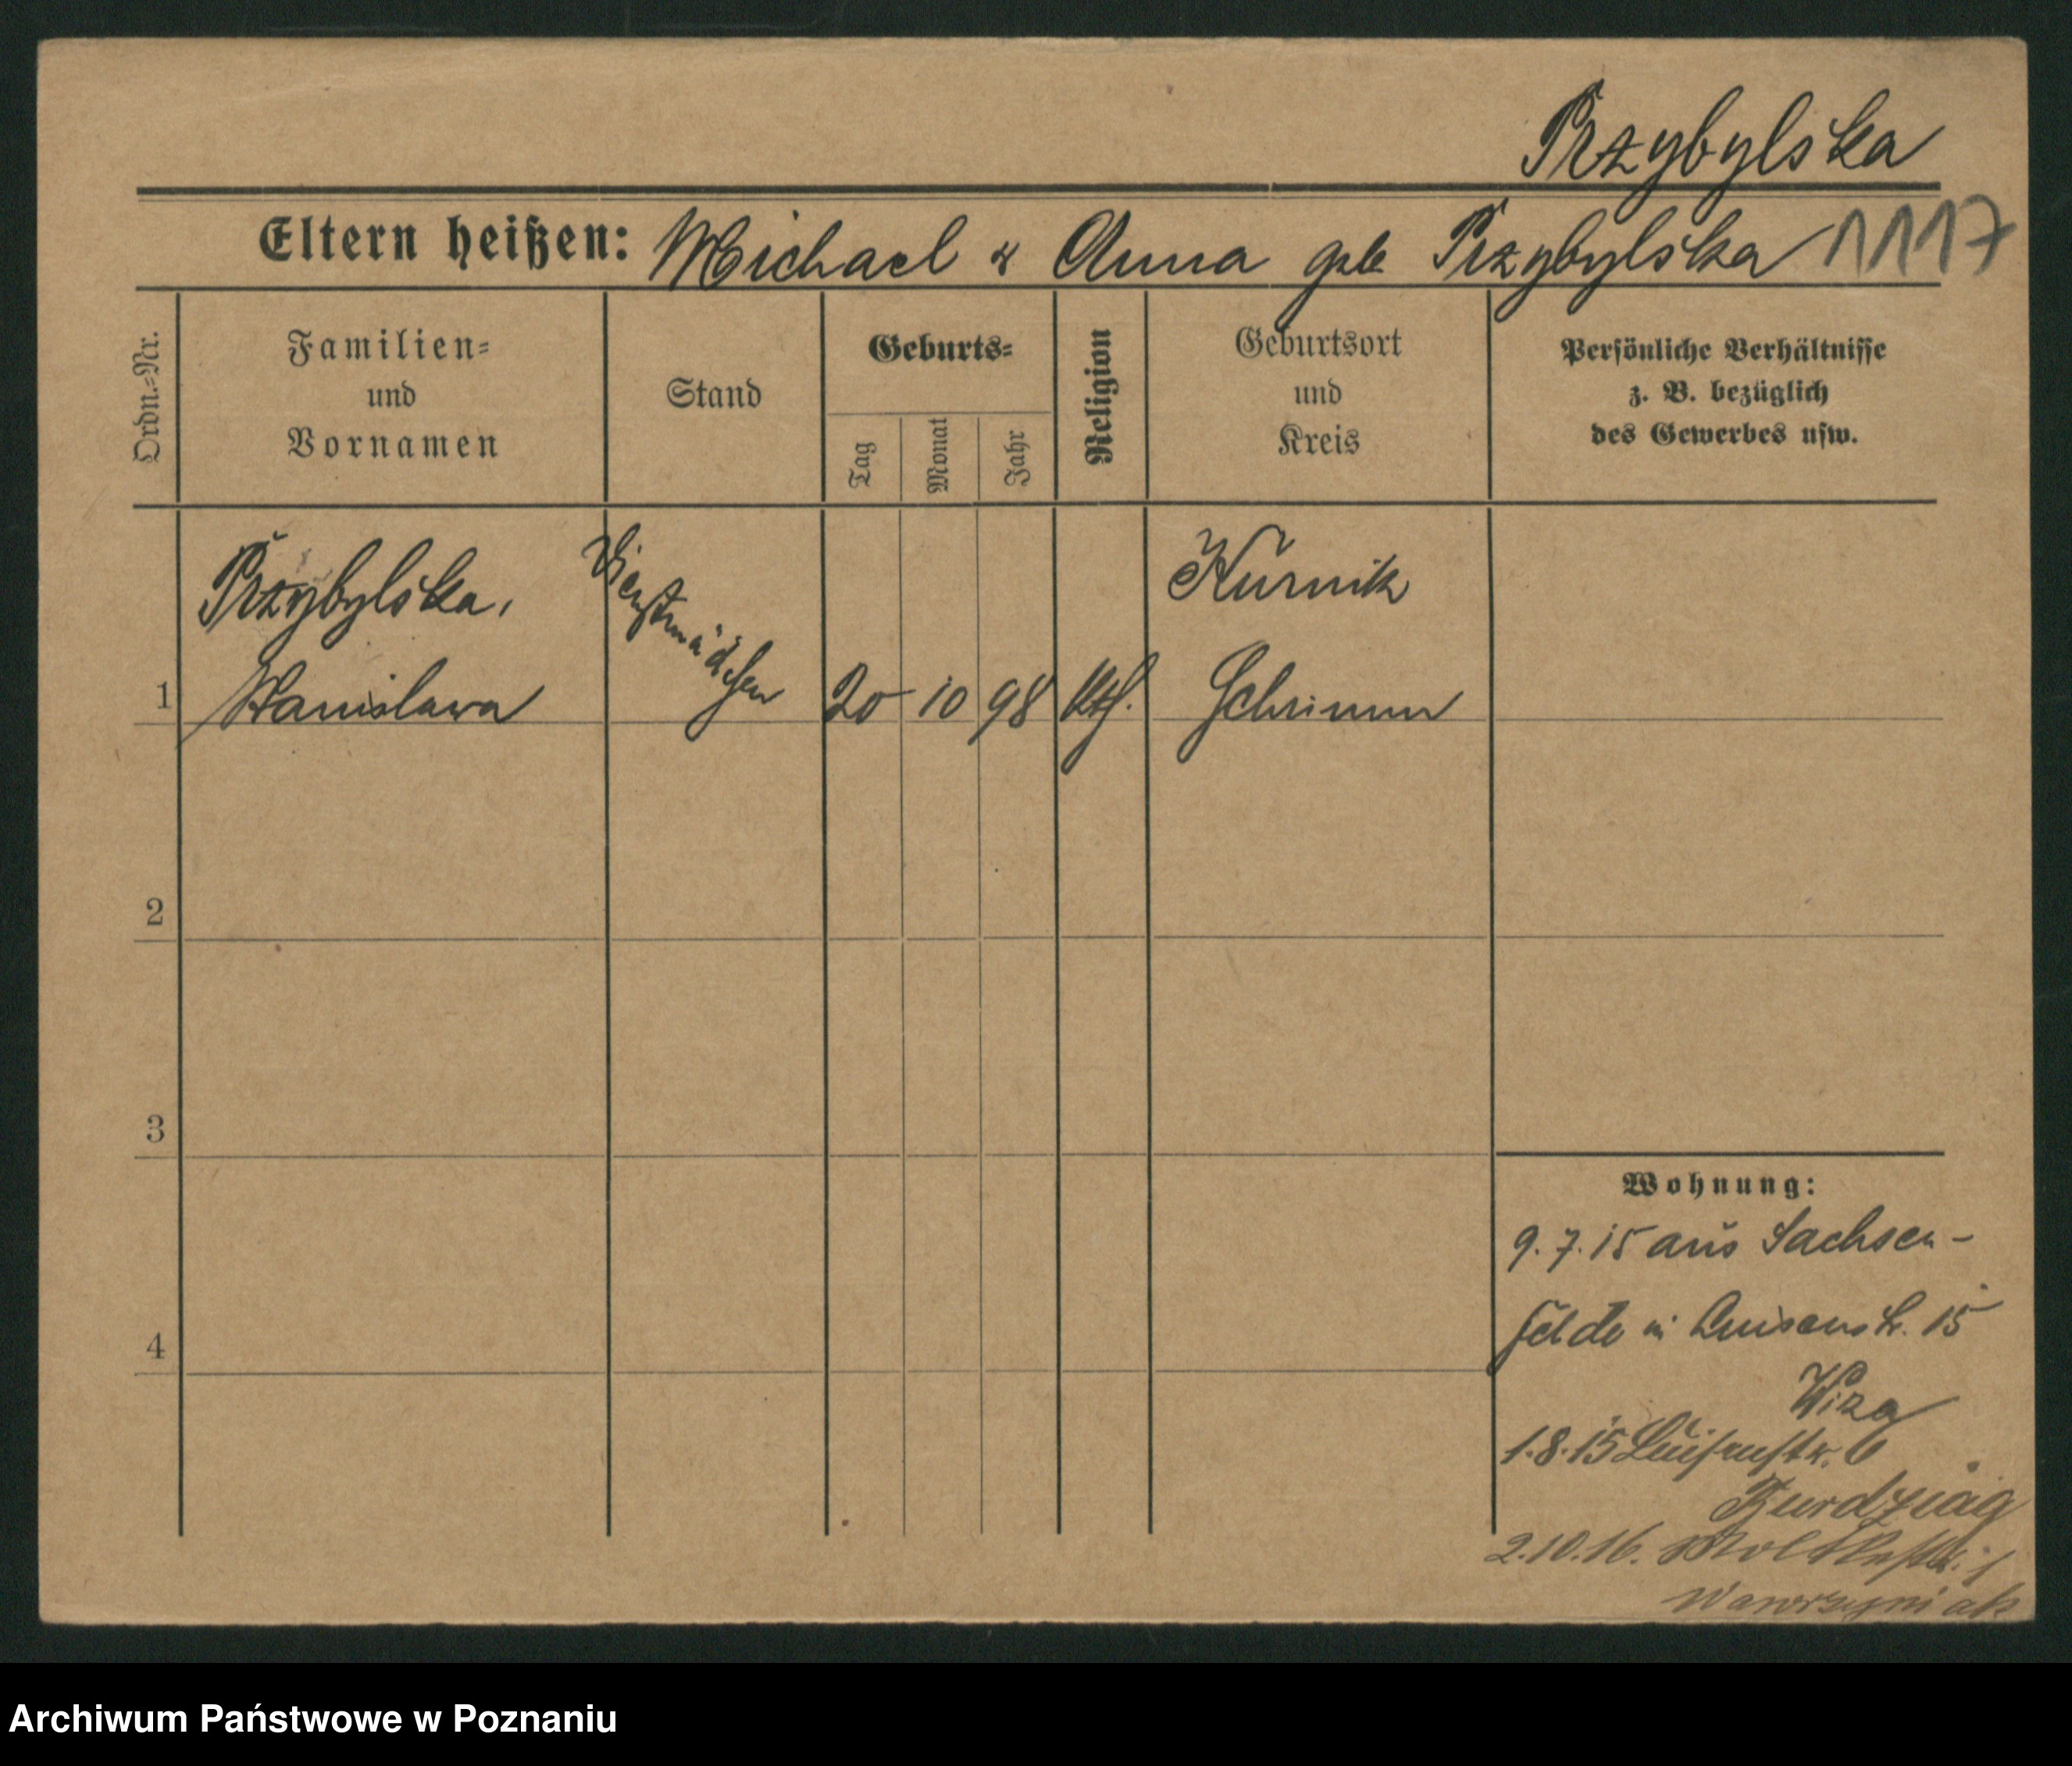 Przybylska
Eltern heißen: Michael & Anna geb Przybylska 1117
Ordn.=Nr.
Familien=
und
Vornamen
Stand
Geburts=
Tag
Monat
Jahr
Religion
Geburtsort
und
Kreis
Persönliche Verhältnisse
z. B. bezüglich
des Gewerbes usw.
Przybylska,
Dienstmädchen
Kurnik
1 Stanislawa 20 10 98 kth. Schrimm
2
3
Wohnung:
9.7.15 aus Sachsen-
felde in Luisenstr. 15
4
1.8.15 Luisenstr. 6
Kurdziąg
2.10.16. Moltkestr. 1
Wawrzyniak
Archiwum Państwowe w Poznaniu